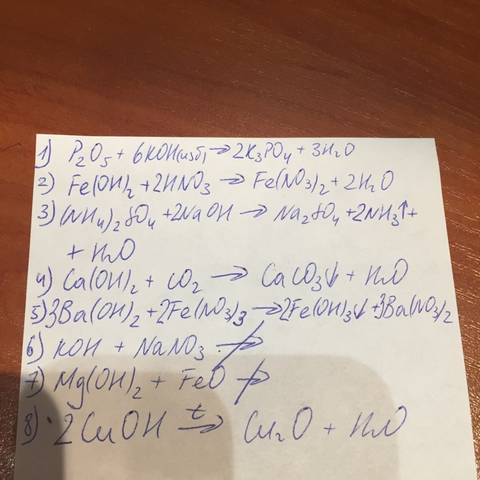 1) P₂O₅ + 6KOH(изб) → 2K₃PO₄ + 3H₂O
2) Fe(OH)₂ + 2HNO₃ → Fe(NO₃)₂ + 2H₂O
3) (NH₄)₂SO₄ + 2NaOH → Na₂SO₄ + 2NH₃↑ +
+ H₂O
4) Ca(OH)₂ + CO₂ → CaCO₃↓ + H₂O
5) 3Ba(OH)₂ + 2Fe(NO₃)₃ → 2Fe(OH)₃↓ + 3Ba(NO₃)₂
6) KOH + NaNO₃ ↛
7) Mg(OH)₂ + FeO ↛
8) 2CuOH t→ Cu₂O + H₂O